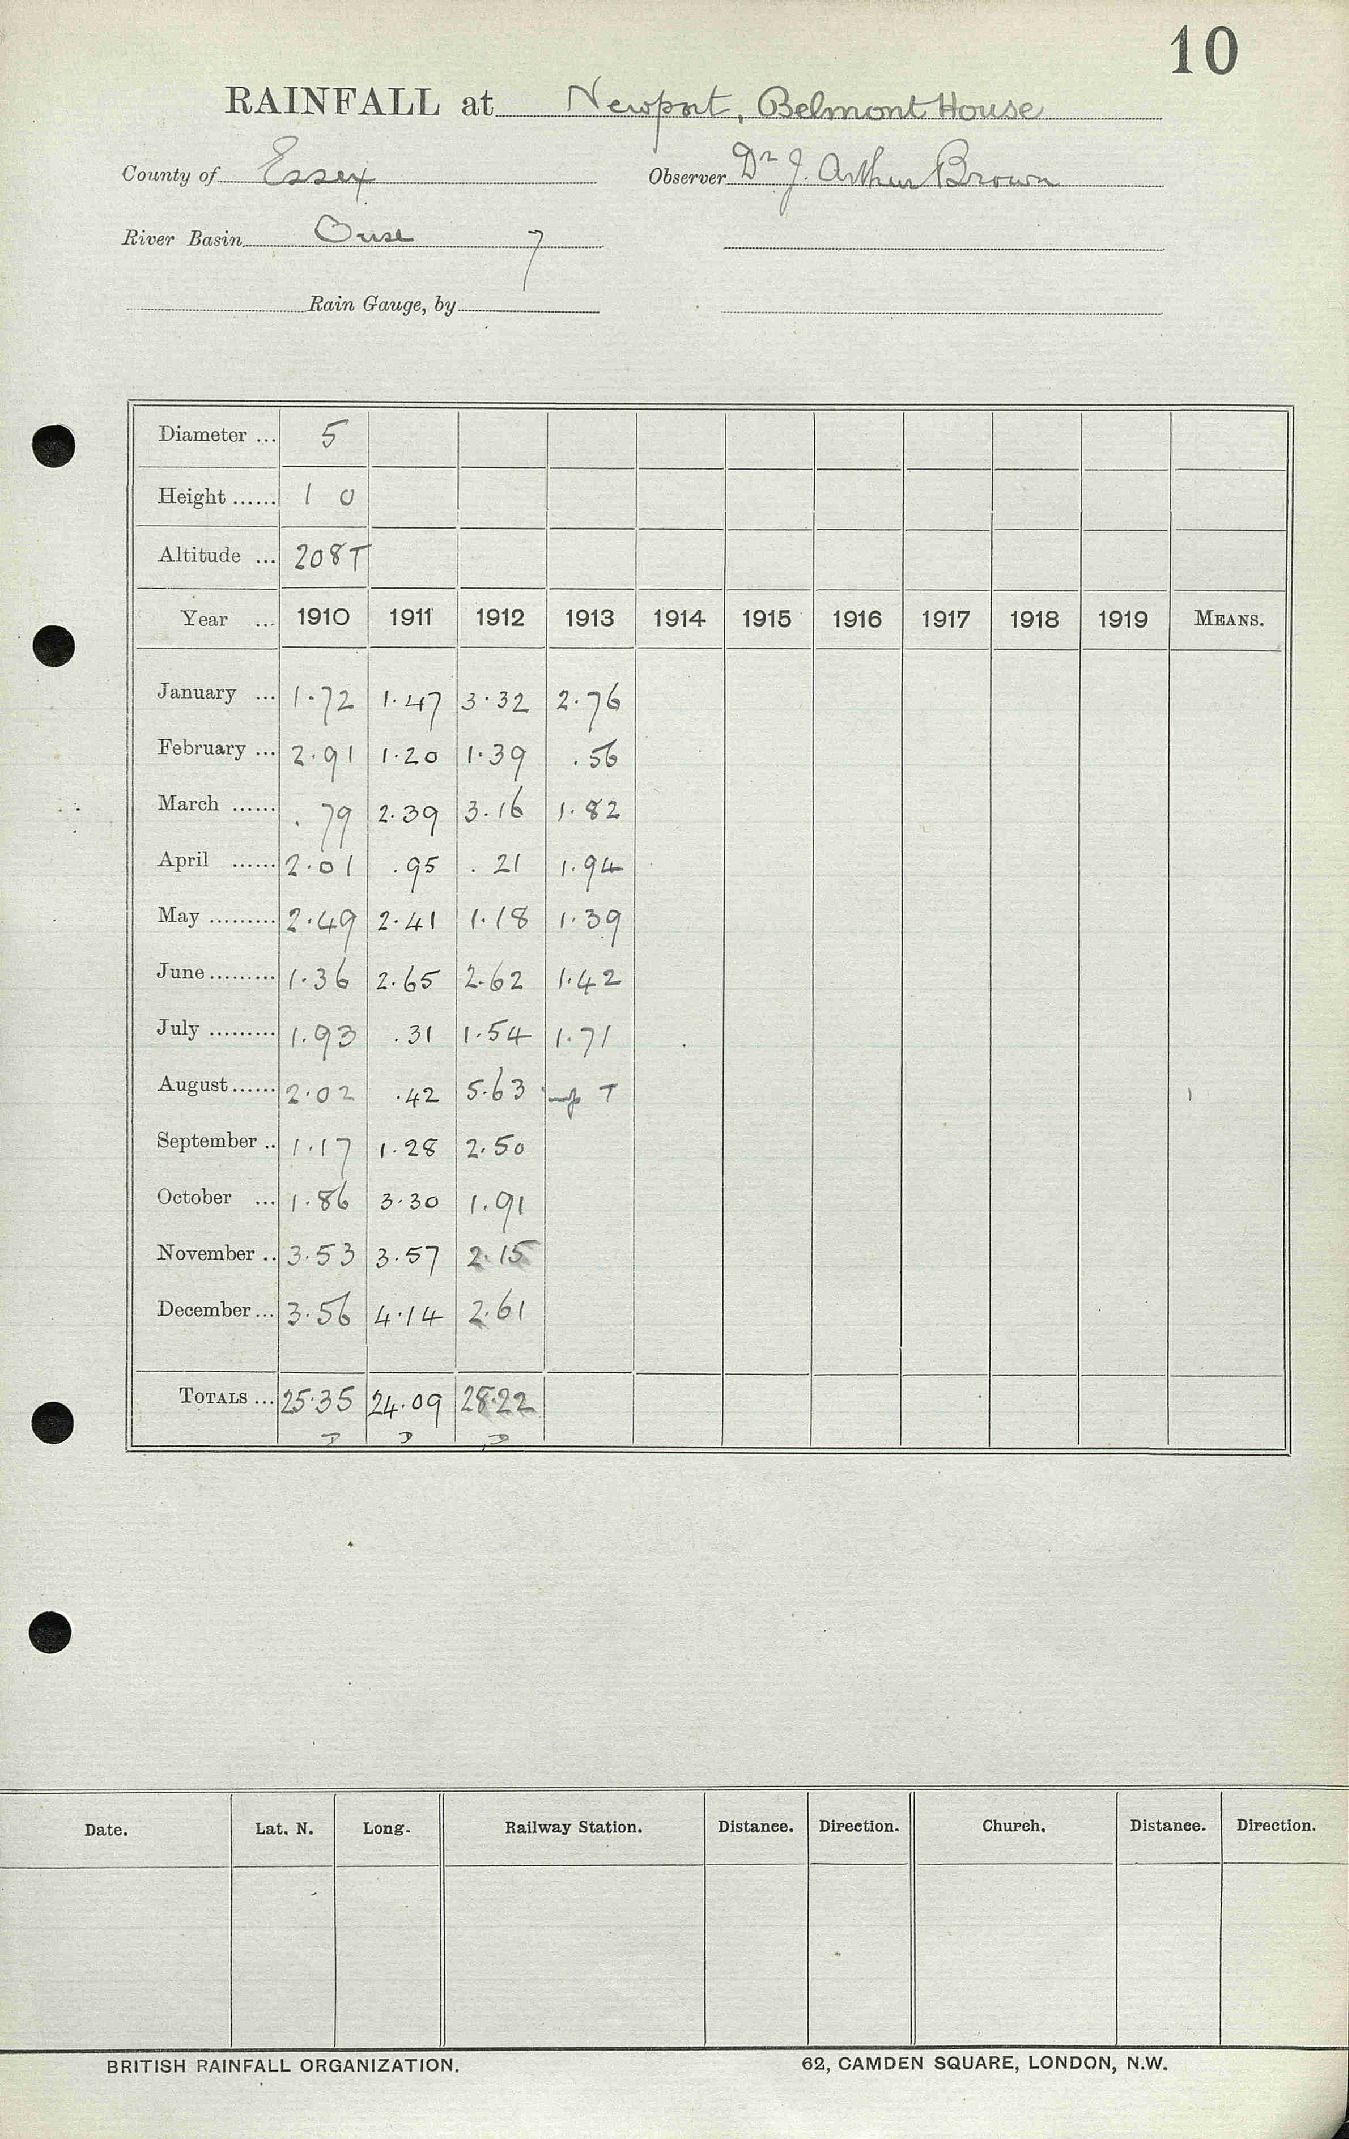 10
RAINFALL at Newport, Belmont House
County of Essex Observer Dr J. Arthur Brown
River Basin Ouse 7
Rain Gauge, by
Diameter ... 5
Height ...... 1 0
Altitude ... 208T
Year ... 1910 1911 1912 1913 1914 1915 1916 1917 1918 1919 MEANS.
January ... 1.72 1.47 3.32 2.76
February ... 2.91 1.20 1.39 .56
March ...... .79 2.39 3.16 1.82
April ...... 2.01 .95 .21 1.94
May ......... 2.49 2.41 1.18 1.39
June ......... 1.36 2.65 2.62 1.42
July ......... 1.93 .31 1.54 1.71
August ...... 2.02 .42 5.63 T
September .. 1.17 1.28 2.50
October ... 1.86 3.30 1.91
November .. 3.53 3.57 2.15
December ... 3.56 4.14 2.61
TOTALS ... 25.35 24.09 28.22
Date. Lat. N. Long. Railway Station. Distance. Direction. Church. Distance. Direction.
BRITISH RAINFALL ORGANIZATION. 62, CAMDEN SQUARE, LONDON, N.W.